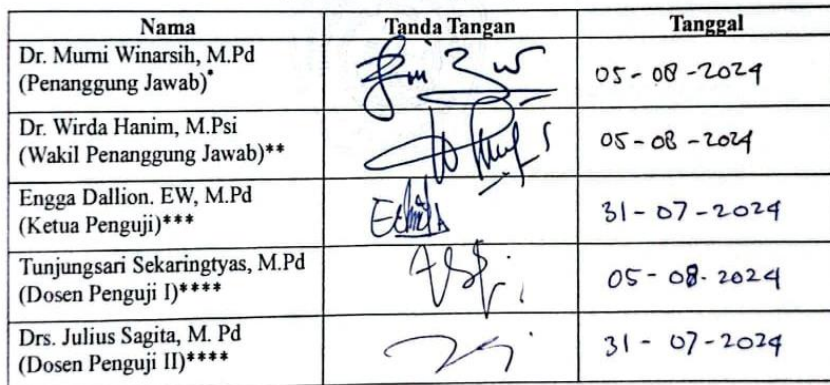 Nama Tanda Tangan Tanggal
Dr. Murni Winarsih, M.Pd
(Penanggung Jawab)* 05-08-2024
Dr. Wirda Hanim, M.Psi
(Wakil Penanggung Jawab)** 05-08-2024
Engga Dallion. EW, M.Pd
(Ketua Penguji)*** 31-07-2024
Tunjungsari Sekaringtyas, M.Pd
(Dosen Penguji I)**** 05-08-2024
Drs. Julius Sagita, M. Pd
(Dosen Penguji II)**** 31-07-2024